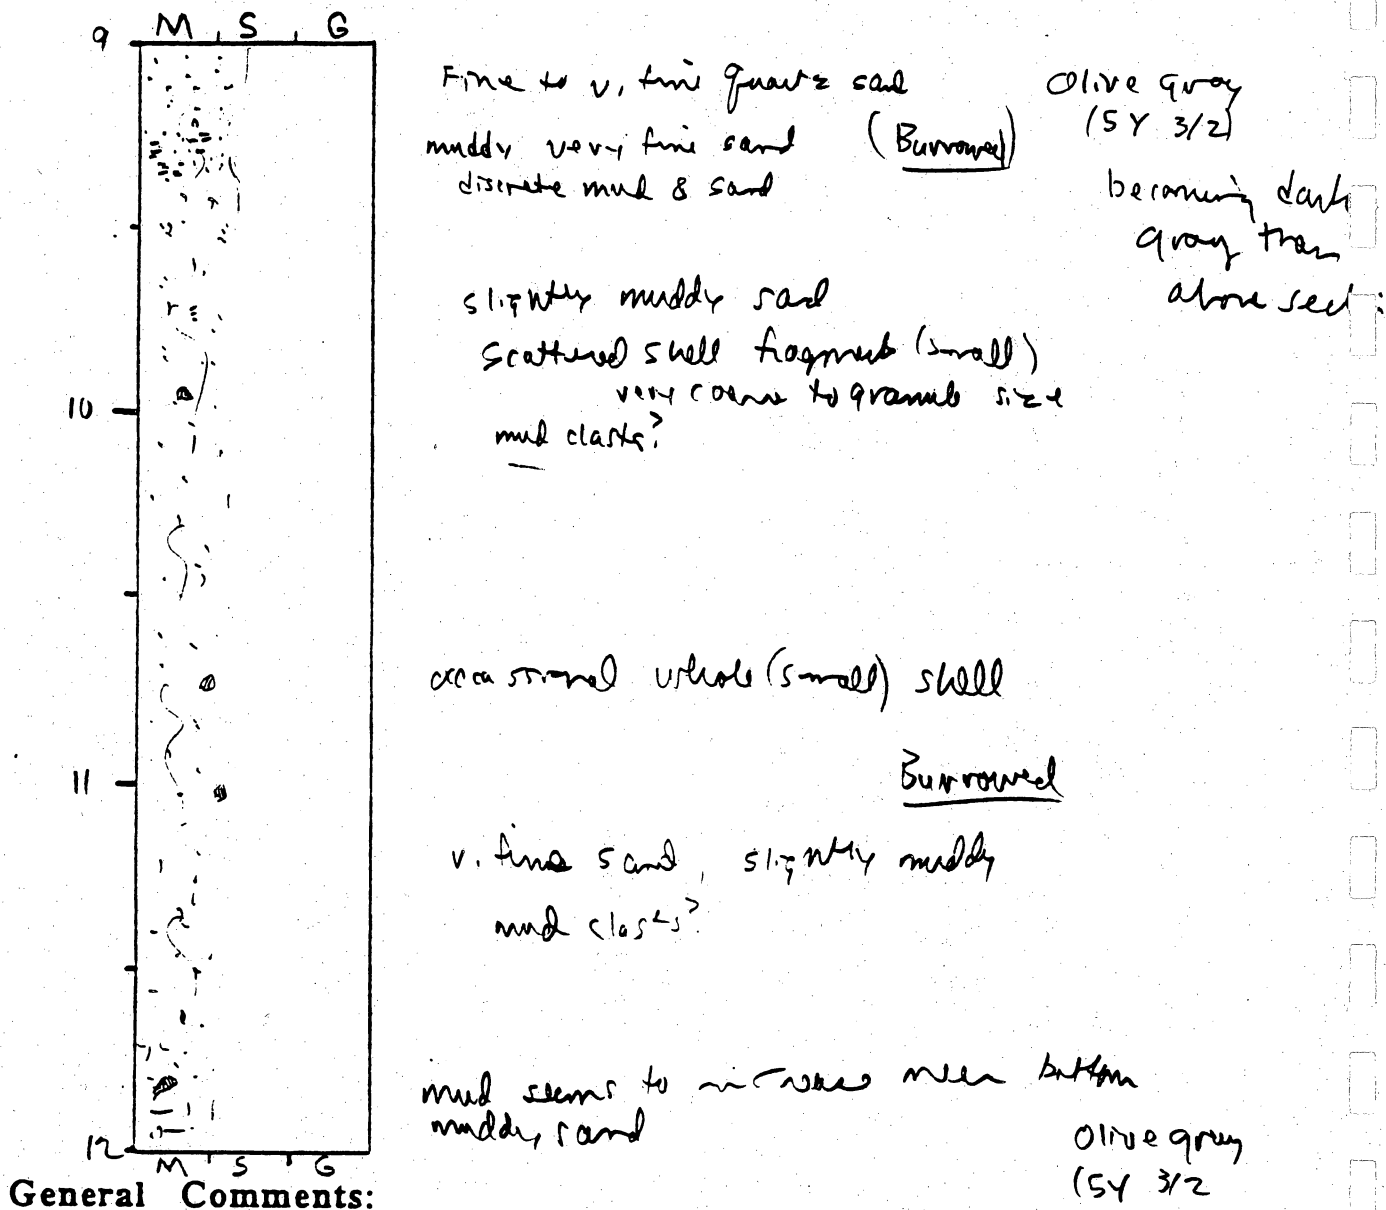 M S G
9
Fine to v. fine quartz sand
Olive gray
(5Y 3/2)
muddy very fine sand (Burrowed)
discrete mud & sand
becoming dark
gray than
above sect.
slightly muddy sand
scattered shell fragments (small)
very coarse to granule size
10
mud clasts?
occassional whole (small) shell
11
Burrowed
v. fine sand, slightly muddy
mud clasts?
mud seems to increase near bottom
muddy sand
Olive gray
(5Y 3/2
12
M S G
General Comments: